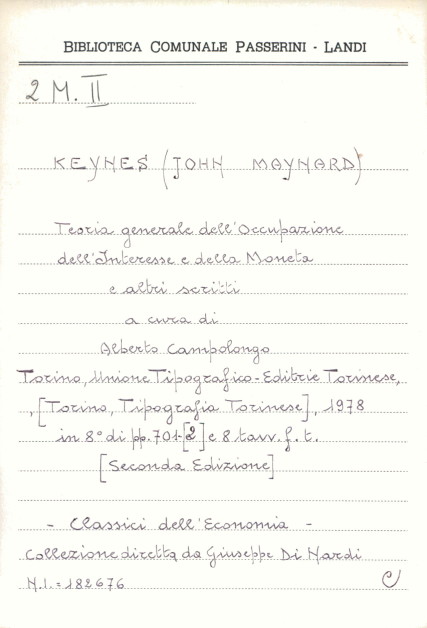 BIBLIOTECA COMUNALE PASSERINI - LANDI
2 M. II
KEYNES (JOHN MAYNARD)
Teoria generale dell'Occupazione
dell'Interesse e della Moneta
e altri scritti
a cura di
Alberto Campolongo
Torino, Unione Tipografico-Editrie Torinese,
, [Torino, Tipografia Torinese], 1978
in 8° di pp. 701-[2] e 8 tavv. f. t.
[Seconda Edizione]
- Classici dell'Economia -
Collezione diretta da Giuseppe Di Nardi
N.I. = 182676